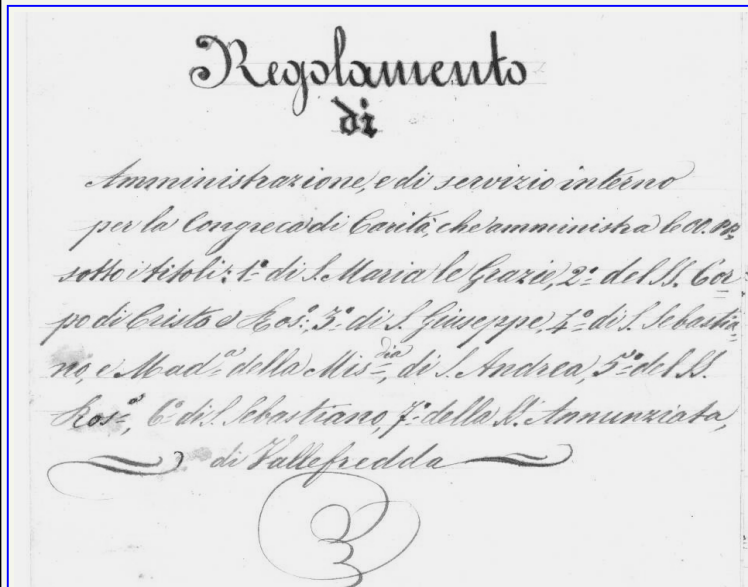 Regolamento
di
Amministrazione, e di servizio interno
per la Congreca di Carità, che amministra le OO. PP.
sotto i titoli: 1º di S. Maria le Grazie, 2º del SS. Cor
po di Cristo e Ros.º, 3º di S. Giuseppe, 4º di S. Sebastia=
no, e Mad.ª della Mis.dia, di S. Andrea, 5º del SS.
Ros.º, 6º di S. Sebastiano, 7º della SS. Annunziata,
di Vallefredda